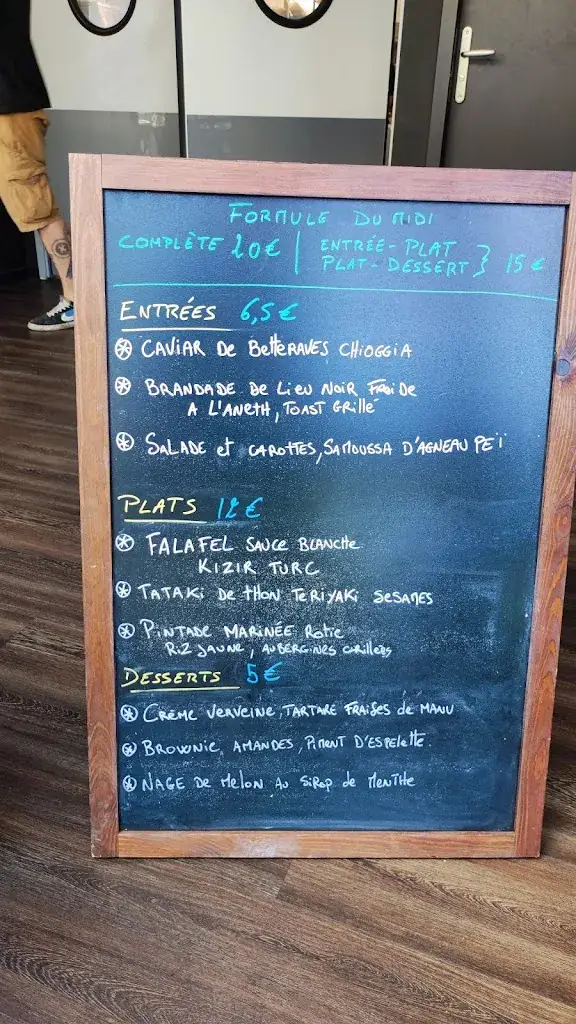 FORMULE DU MIDI
COMPLÈTE 20€ | ENTRÉE-PLAT
PLAT-DESSERT } 15€
ENTRÉES 6,5€
CAVIAR DE BETTERAVES CHIOGGIA
BRANDADE DE LIEU NOIR FROIDE
A L'ANETH, TOAST GRILLÉ
SALADE et CAROTTES, SAMOUSSA D'AGNEAU PEÏ
PLATS 12€
FALAFEL SAUCE BLANCHE
KIZIR TURC
TATAKI DE THON TERIYAKI SESAMES
PINTADE MARINÉE ROTIE
RIZ JAUNE, AUBERGINES GRILLEES
DESSERTS 5€
CRÈME VERVEINE, TARTARE FRAISES de MANU
BROWNIE, AMANDES, PIMENT D'ESPELETTE.
NAGE DE MELON AU SIROP de MENTHE